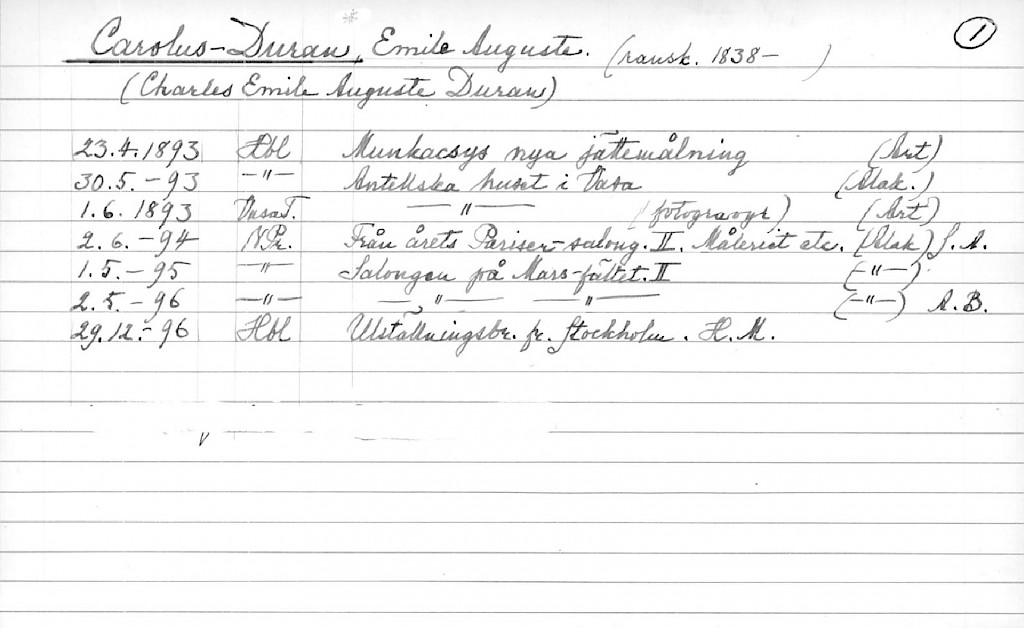 Carolus-Duran, Emile Auguste. (ransk. 1838- ) 1
(Charles Emile Auguste Duran)
23.4.1893 Hbl Munkacsys nya jättemålning (Art)
30.5.-93 -"- Antellska huset i Vasa (Alak.)
1.6.1893 VasaT. -"- (fotogravyr) (Art)
2.6.-94 N.Pr. Från årets Pariser-salong. II. Måleriet etc. (Alak) J.A.
1.5.-95 -"- Salongen på Mars-fältet. II (-"-)
2.5.-96 -"- -"- -"- (-"-) A.B.
29.12.-96 Hbl Utställningsbr. fr. Stockholm. H.M.